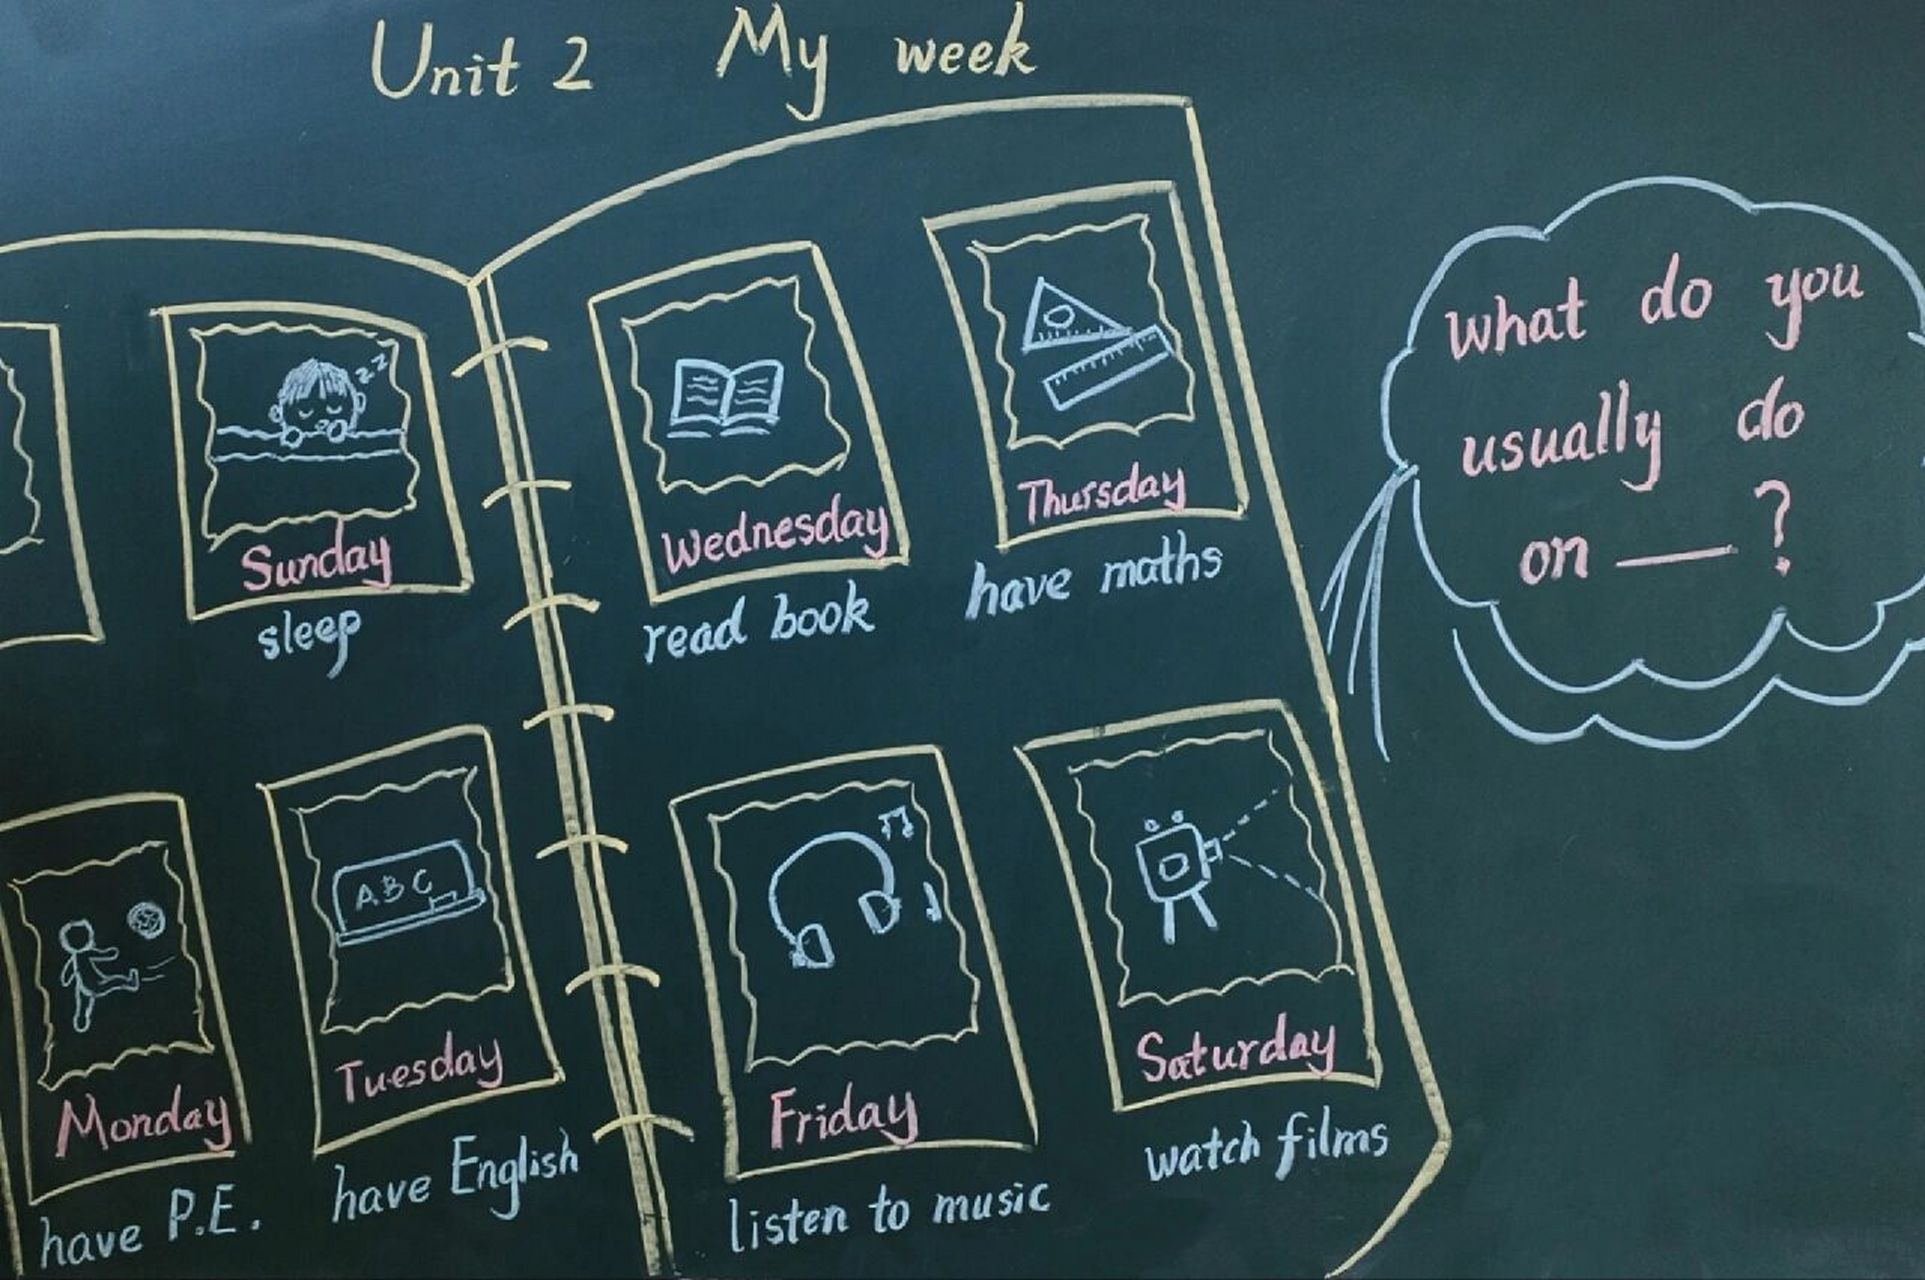 Unit 2 My week
Sunday
sleep
zz
Monday
have P.E.
ABC
Tuesday
have English
Wednesday
read book
Thursday
have maths
Friday
listen to music
Saturday
watch films
what do you
usually do
on — ?